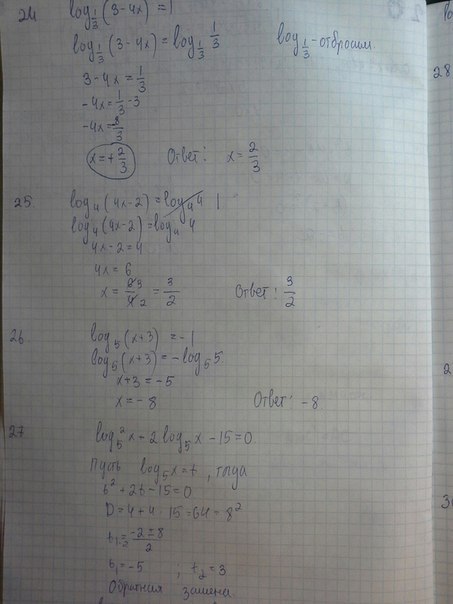 24 log_{1/3}(3-4x) = 1
log_{1/3}(3-4x) = log_{1/3} 1/3 log_{1/3} - отбросим
3-4x = 1/3
-4x = 1/3 - 3
-4x = 8/3
x = + 2/3 Ответ: x = 2/3
25 log₄(4x-2) = log₄4 1
log₄(4x-2) = log₄ 4
4x-2 = 4
4x = 6
x = 6 3/4 2 = 3/2 Ответ: 3/2
26 log₅(x+3) = -1
log₅(x+3) = -log₅5
x+3 = -5
x = -8 Ответ: -8
27 log₅²x - 2log₅x - 15 = 0
Пусть log₅x = t, тгда
t² + 2t - 15 = 0
D = 4+4 15 = 64 = 8²
t₁₂ = -2±8/2
t₁ = -5 ; t₂ = 3
Обратная замена
28